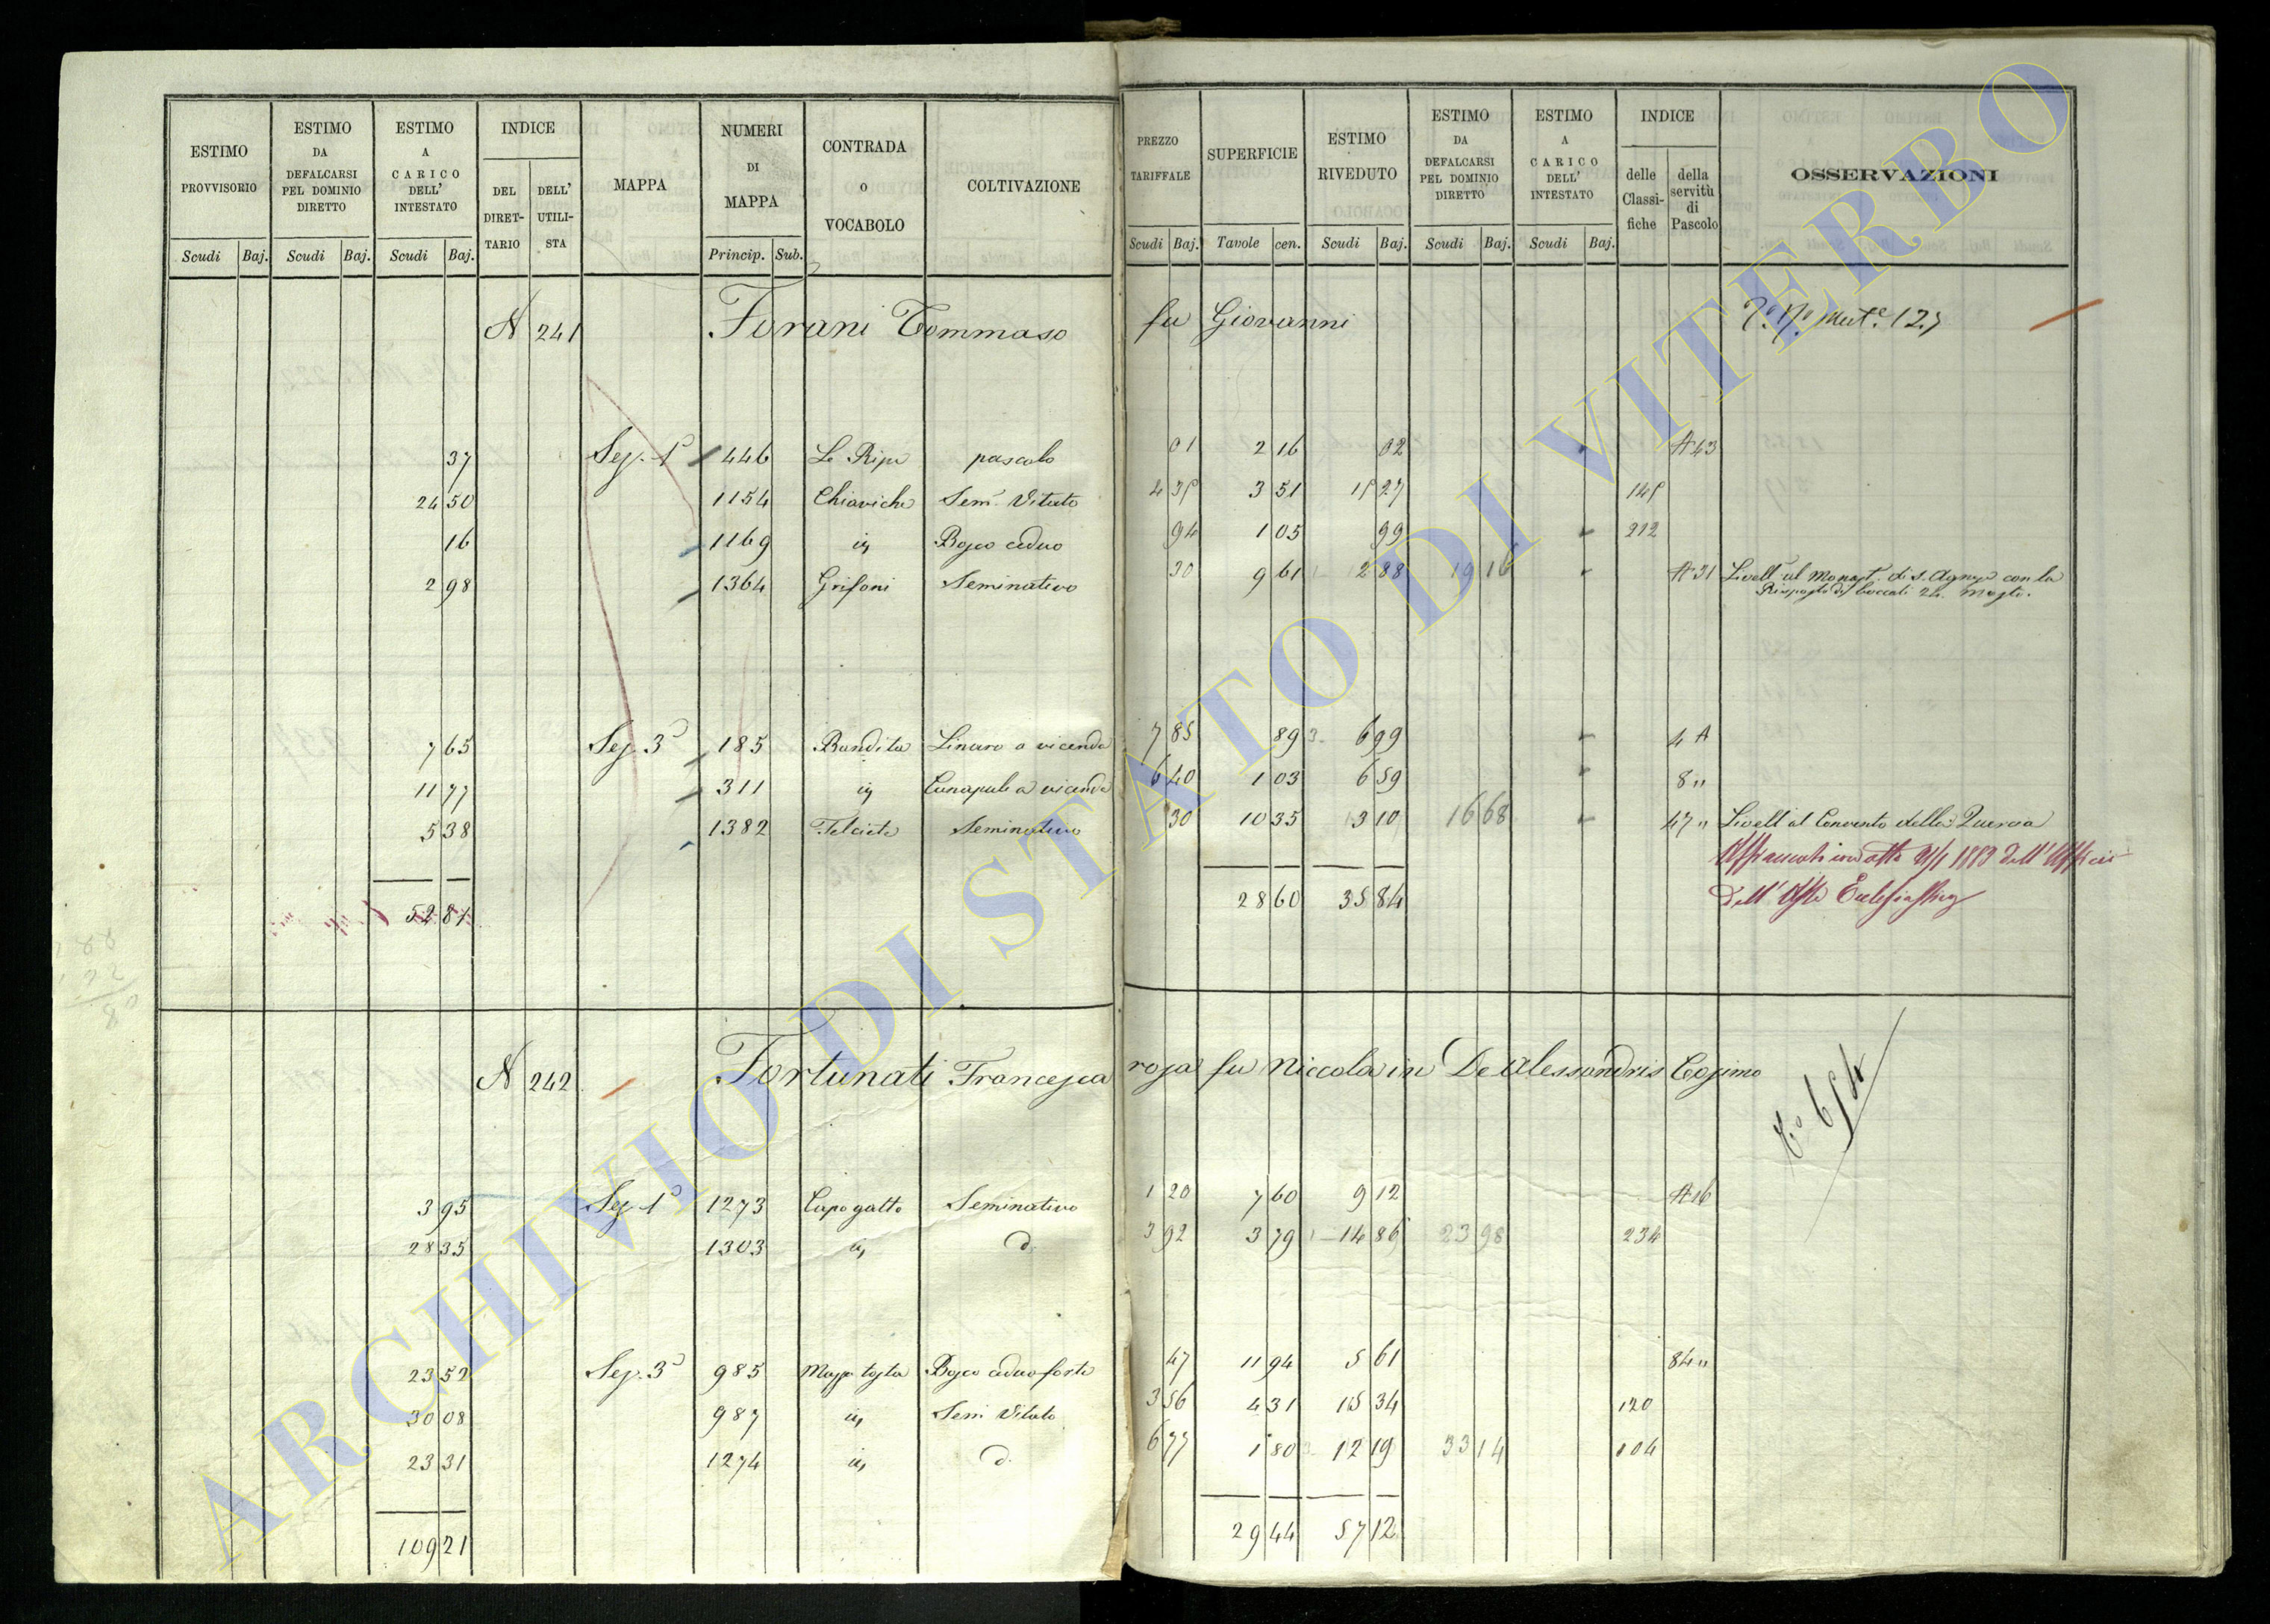 ESTIMO PROVVISORIO
Scudi Baj.
ESTIMO DA DEFALCARSI PEL DOMINIO DIRETTO
Scudi Baj.
ESTIMO A CARICO DELL' INTESTATO
Scudi Baj.
INDICE
DEL DIRET-TARIO
DELL' UTILI-STA
MAPPA
NUMERI DI MAPPA
Princip. Sub.
CONTRADA o VOCABOLO
COLTIVAZIONE
PREZZO TARIFFALE
Scudi Baj.
SUPERFICIE
Tavole cen.
ESTIMO RIVEDUTO
Scudi Baj.
ESTIMO DA DEFALCARSI PEL DOMINIO DIRETTO
Scudi Baj.
ESTIMO A CARICO DELL' INTESTATO
Scudi Baj.
INDICE
delle Classi-fiche
della servitù di Pascolo
OSSERVAZIONI
N 241 Forani Tommaso fu Giovanni
37 Sez. 1ª 446 Le Ripe pascolo 01 2 16 02 A 43
24 50 1154 Chiaviche Sem. Vitato 4 35 3 51 15 27 145
16 1169 Bosco ceduo 94 1 05 99 212
2 98 1364 Grifoni Seminativo 30 9 61 2 88 19 16 A 31 Livell. al Monast. di S. Agnese con la
Risposta di boccali 24. mosto.
7 65 Sez. 3ª 185 Bandita Linaro a vicenda 7 85 89 6 99 4 A
11 77 311 Canapule a vicenda 6 40 1 03 6 59 8 "
5 38 1382 Felceta Seminativo 30 10 35 3 10 16 68 47 " Livell. al Convento della Quercia
1889 dell' Ufficio
52 81 28 60 35 84 dell' Asse
N 242 Fortunati Francesca rosa fu Niccola in De Alessandris Cosimo
3 95 Sez. 1ª 1273 Capo gatto Seminativo 1 20 7 60 9 12 A 16
28 35 1303 d. 3 92 3 79 14 86 23 98 234
23 52 Sez. 3ª 985 Bosco ceduo forte 47 11 94 5 61 84 "
30 08 987 Sem. Vitato 3 56 4 31 15 34 120
23 31 1274 d. 6 77 1 80 12 19 33 14 104
109 21 29 44 57 12
ARCHIVIO DI STATO DI VITERBO